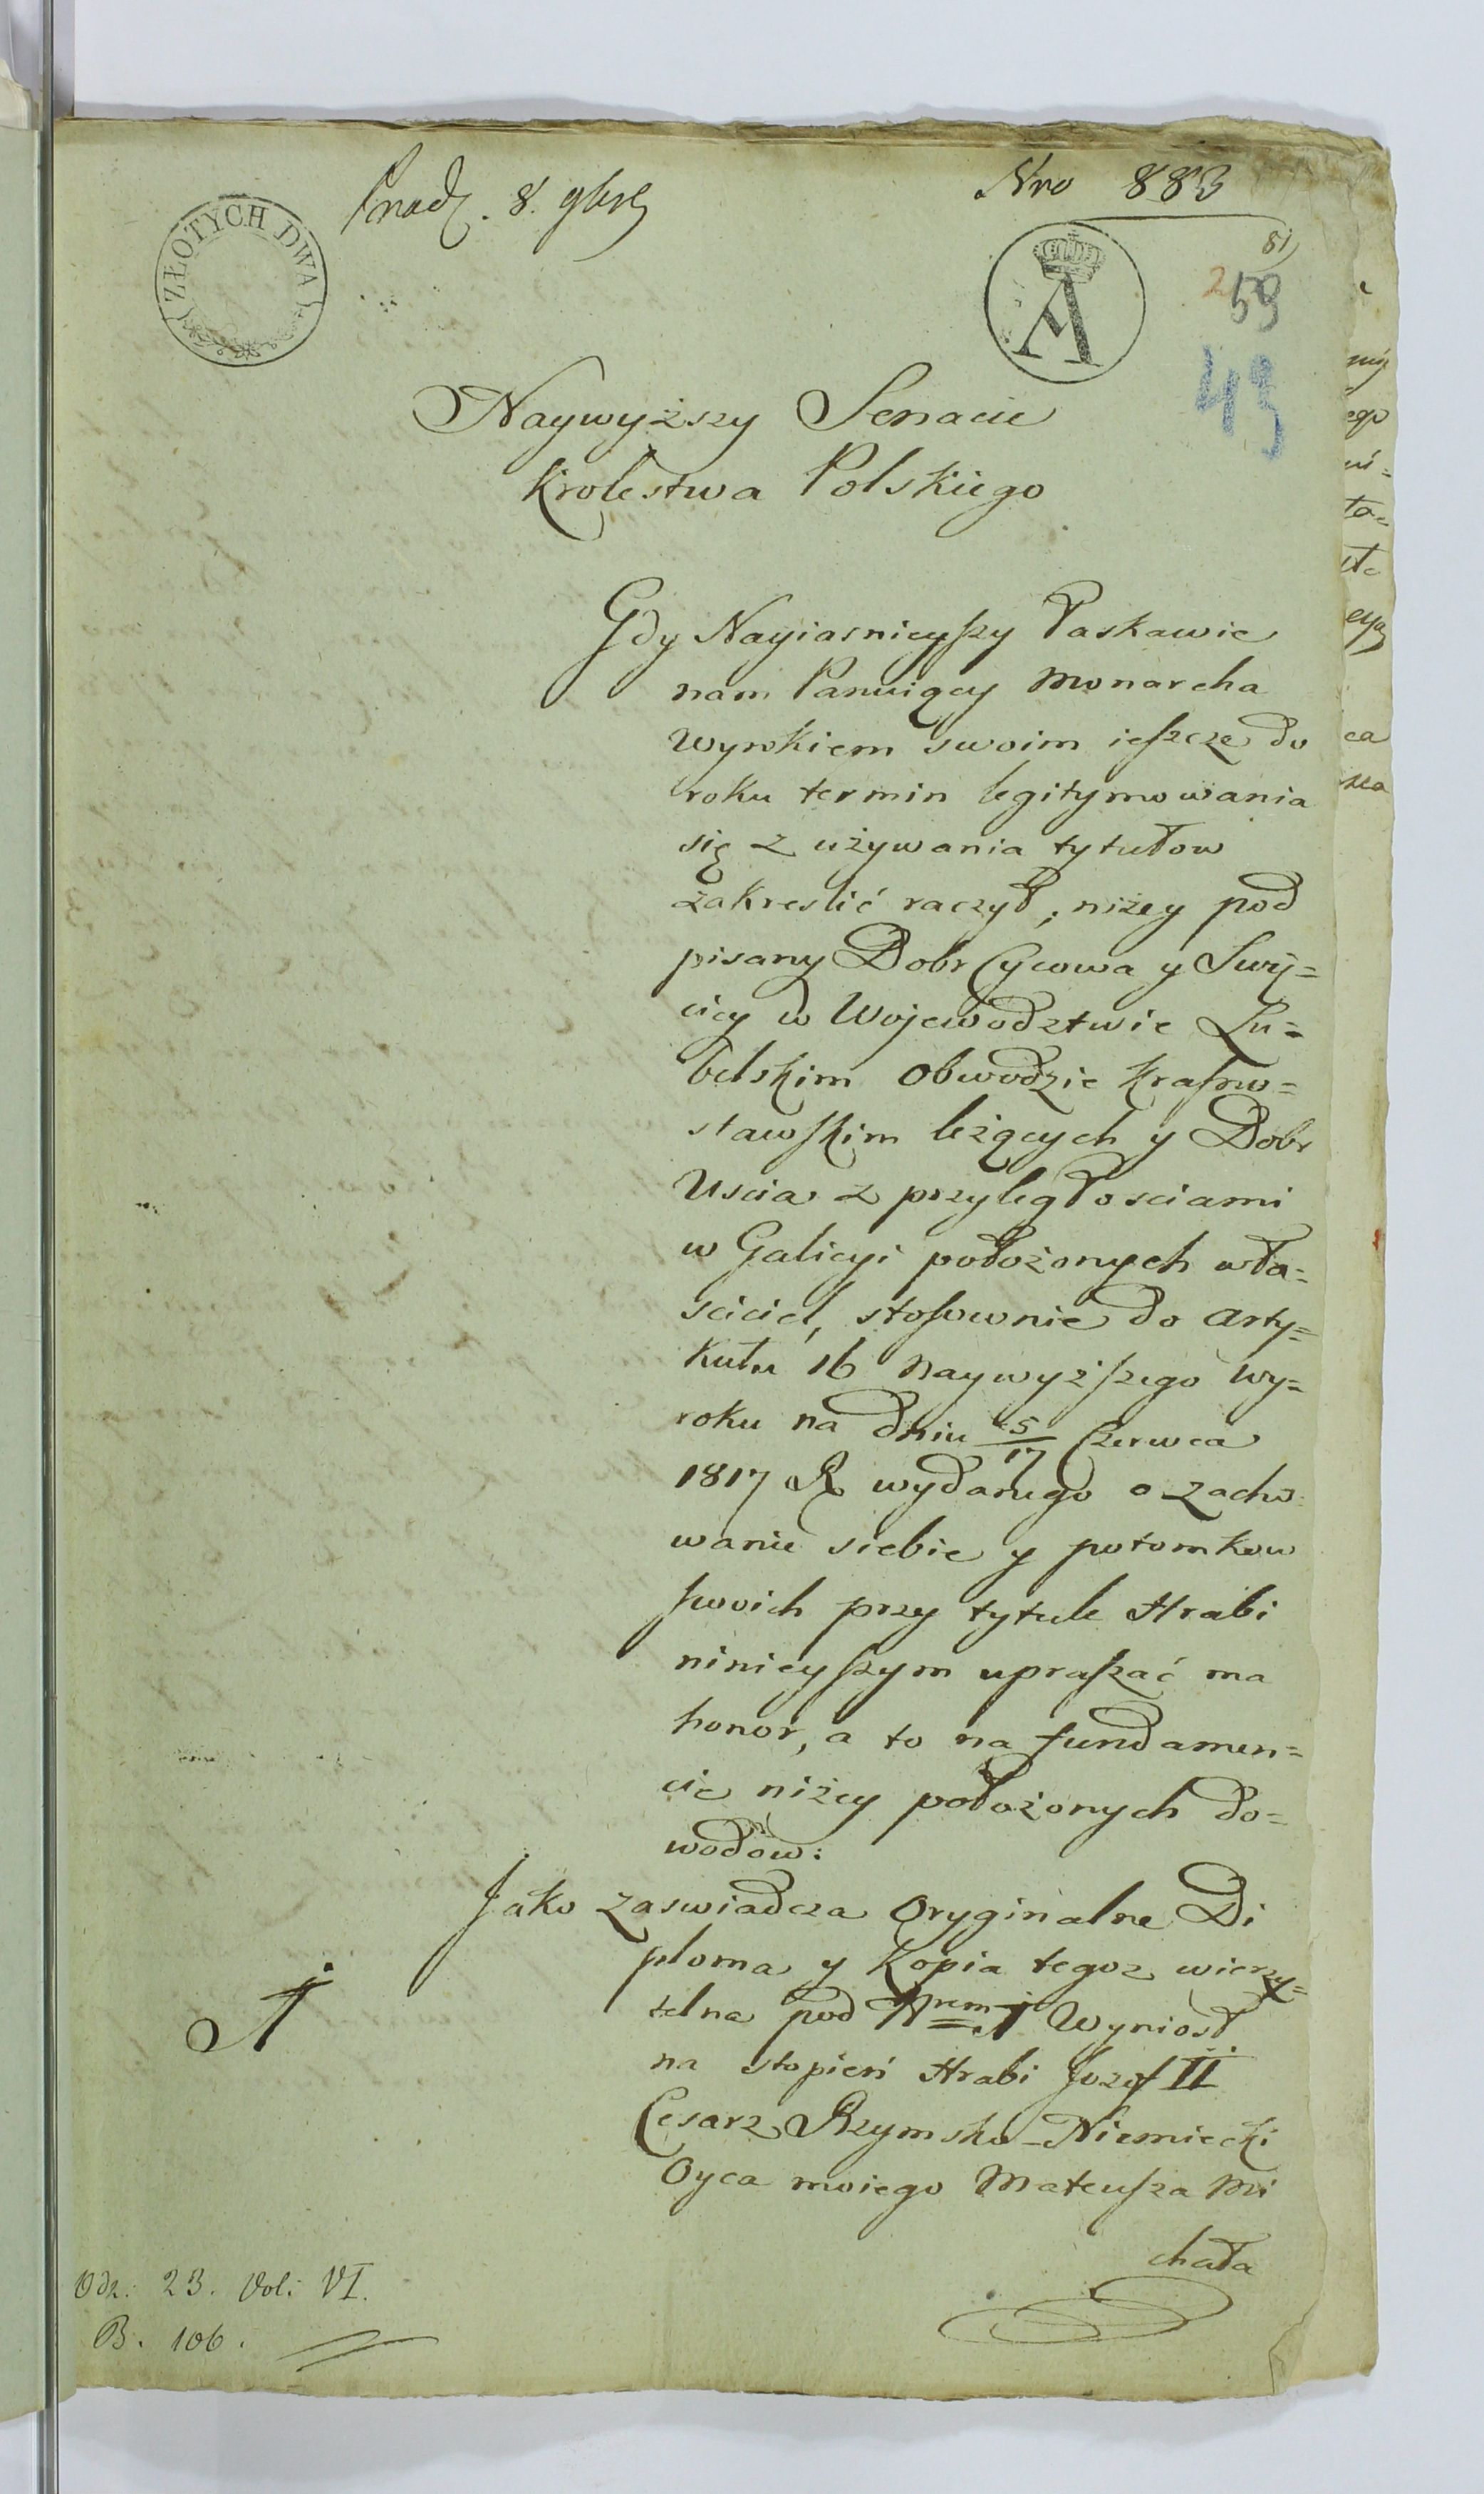 Nro 883
8. 9bre
ZŁOTYCH DWA
A
81
259
43
Naywyższy Senacie
Krolestwa Polskiego
Gdy Nayiasnieyſzy Łaskawie
nam Panuiący Monarcha
Wyrokiem swoim ieſzcze do
roku termin legitymowania
się z używania tytułow
zakreslić raczył, niżey pod
pisany Dobr Cycowa y Swiy=
cicy w Wojewodztwie Lu=
belskim Obwodzie Kraſno=
stawſkim leżących y Dobr
Uscia z przyległosciami
w Galicyi położonych wła=
sciciel, stoſownie do arty=
kułu 16 Naywyżſzego Wy=
roku na dniu 5/17 Czerwca
1817 R wydanego o zacho=
wanie siebie y potomkow
ſwoich przy tytule Hrabi
ninieyſzym upraſzać ma
honor, a to na fundamen=
cie niżey położonych do=
wodów:
Jako zaswiadcza Oryginalne Di
ploma y Kopia tegoz wierzy=
telna pod Nrem 1 Wyniosł
1
na stopień Hrabi Jozef II
Cesarz Rzymsko-Niemiecki
Oyca moiego Mateuſza Mi
chała
Odz: 23. Vol: VI.
B. 106.